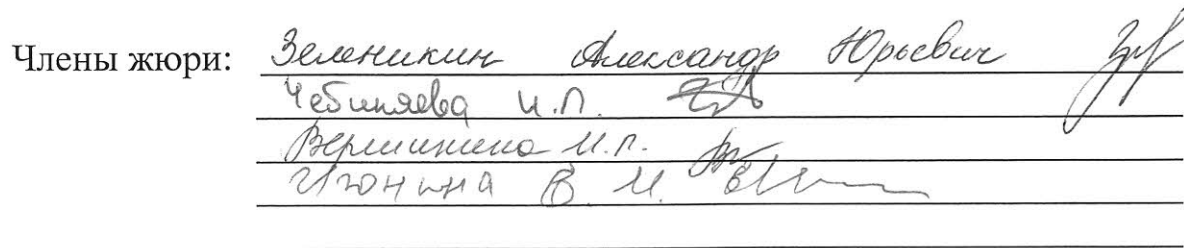 Члены жюри: Зеленикин Александр Юрьевич
Чебиняева И.П.
Вершинина И.П.
Игонина В. И.